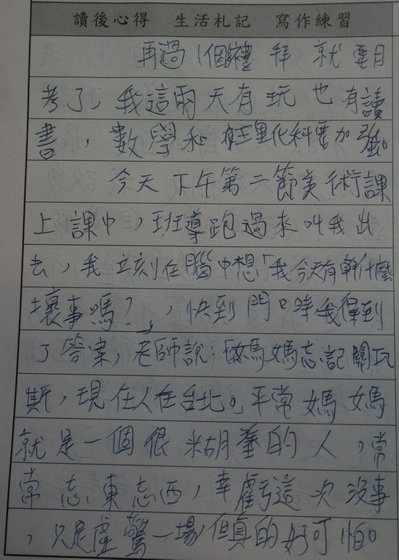 讀後心得 生活札記 寫作練習
再過1個禮拜就要月
考了,我這兩天有玩也有讀
書,數學和理化科要加強。
今天下午第二節美術課
上課中,班導跑過來叫我出
去,我立刻在腦中想「我今天有幹什麼
壞事嗎?」,快到門口時我得到
了答案,老師說:「媽媽忘記關瓦
斯,現在人在台北。」平常媽媽
就是一個很糊塗的人,常
常忘東忘西,幸虧這次沒事
,只是虛驚一場,但真的好可怕。